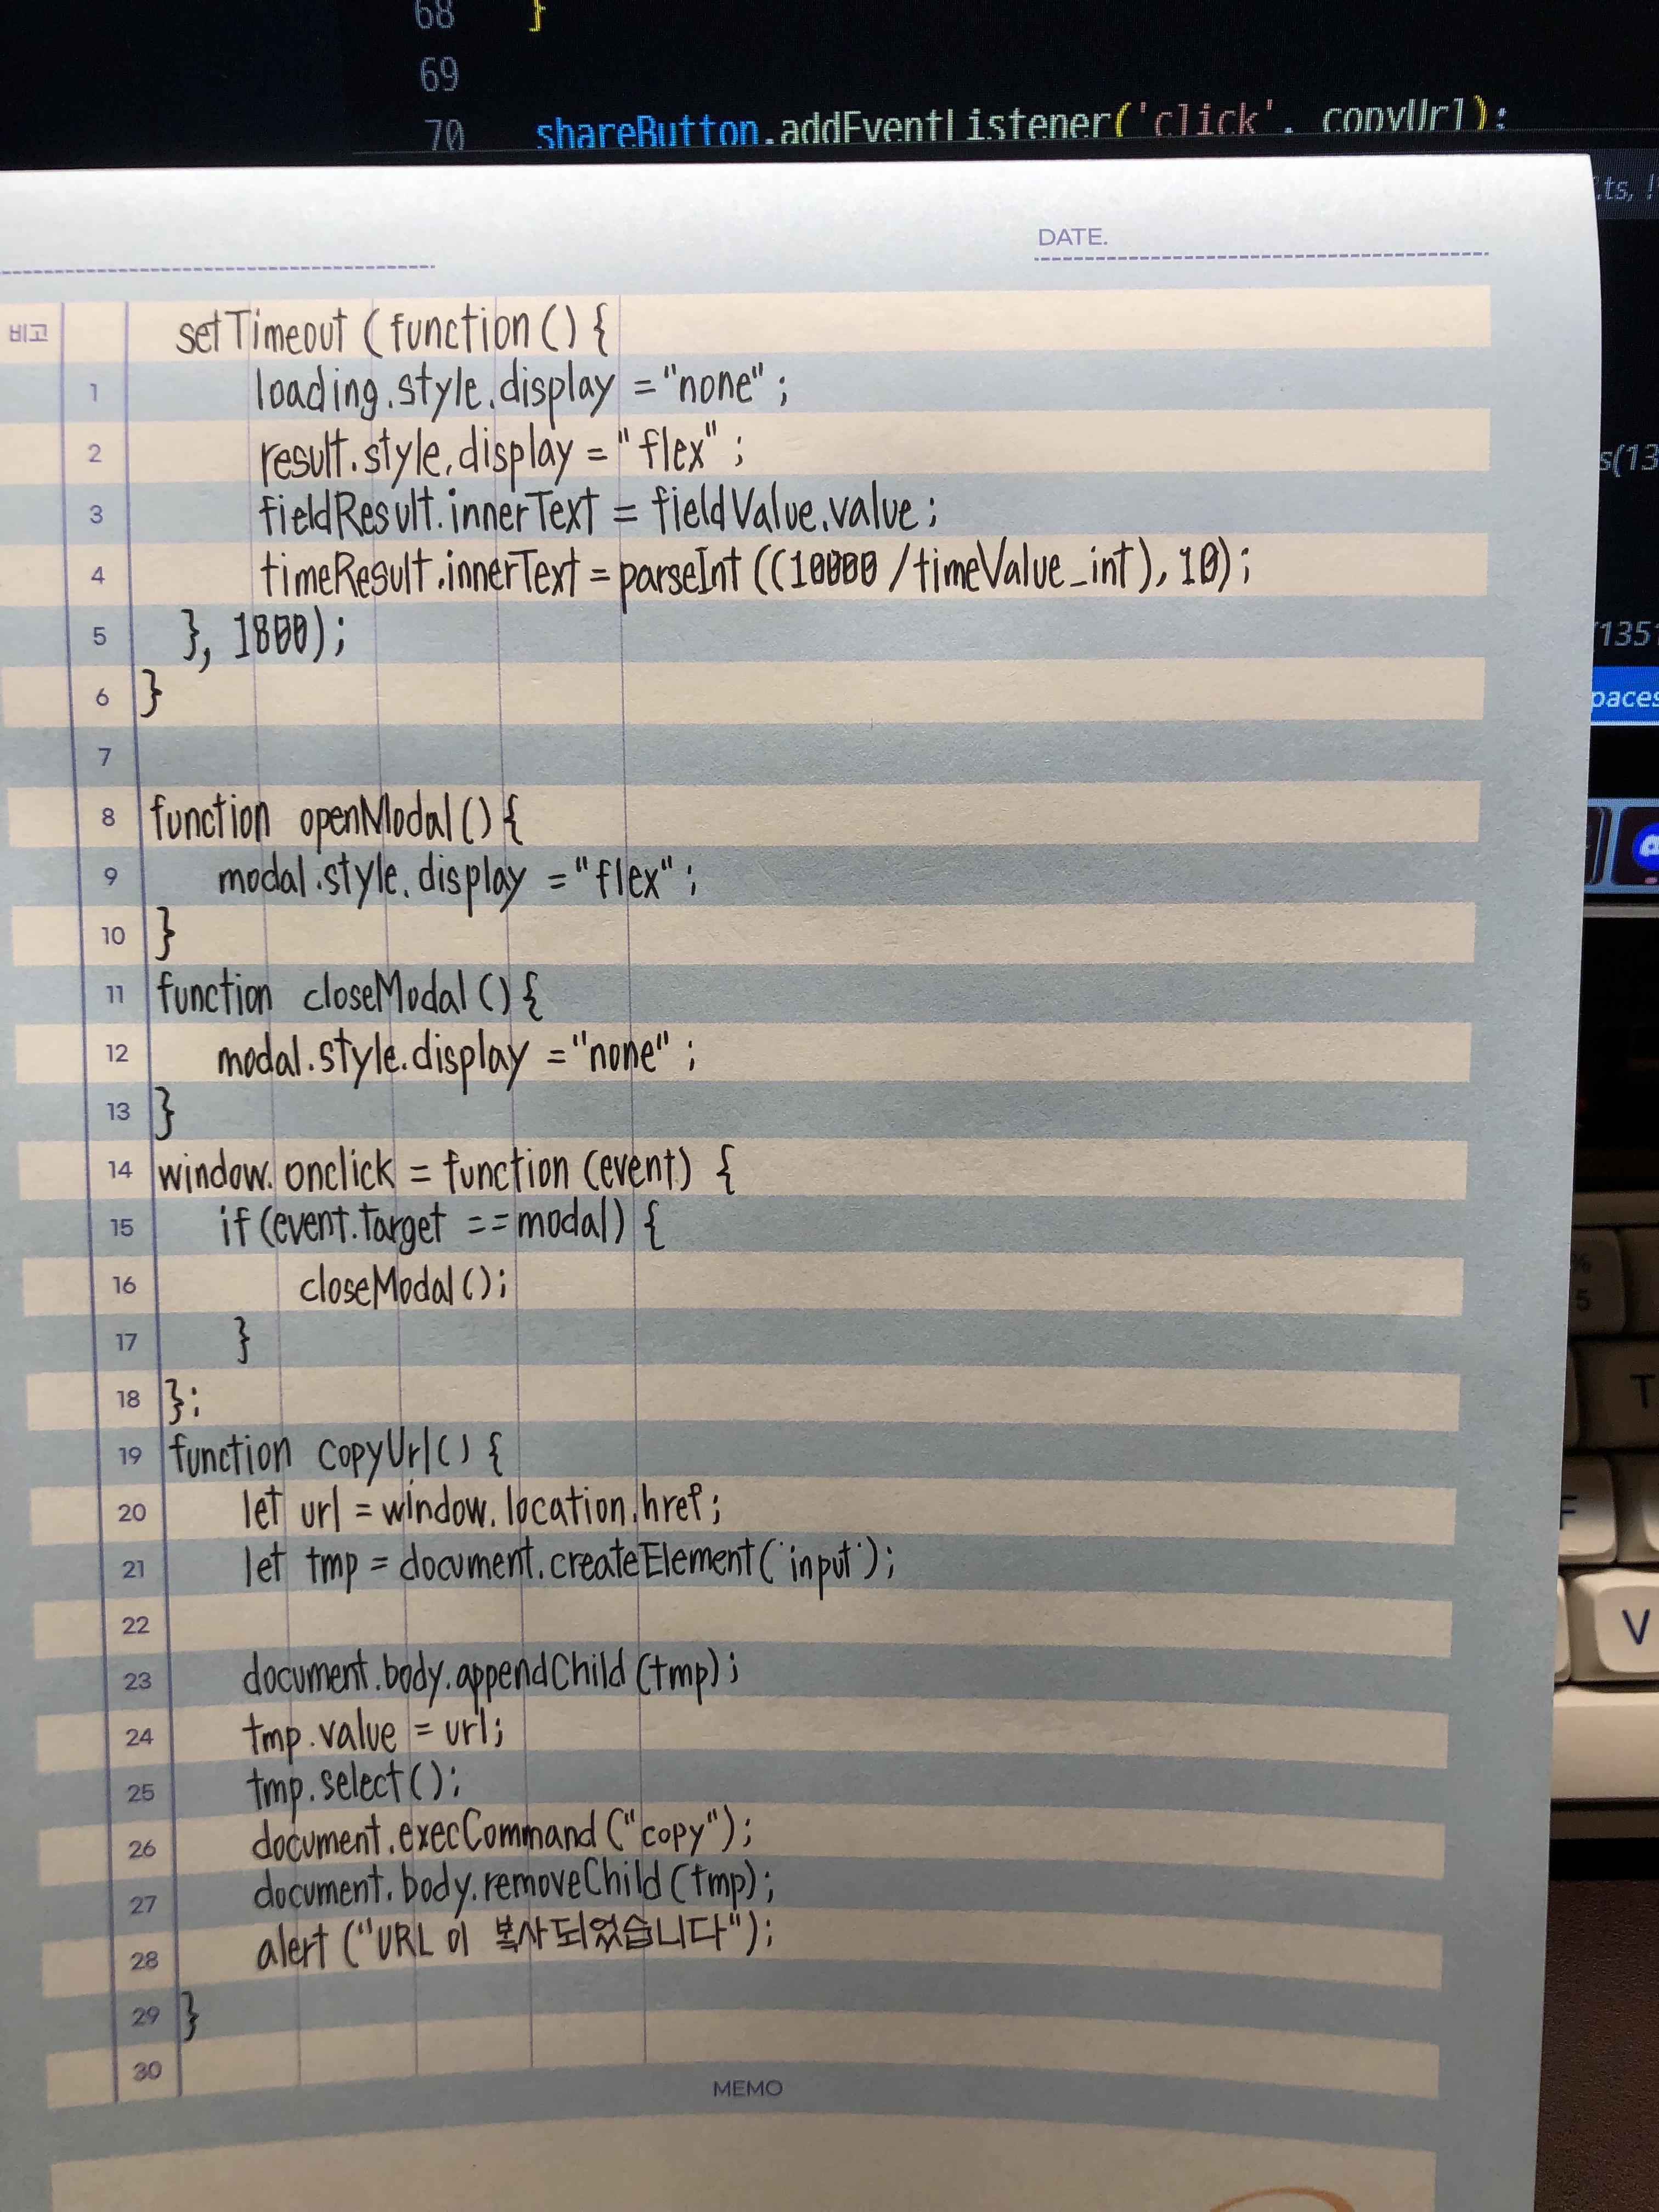 68 }
69
70 shareButton.addEventListener('click', copyUrl);
.ts, !
DATE.
비고 setTimeout (function () {
1 loading.style.display = "none" ;
2 result.style.display = "flex" ;
s(13
3 fieldResult.innerText = fieldValue.value ;
4 timeResult.innerText = parseInt ((10000 / timeValue_int), 10);
5 }, 1800);
1351
6 }
paces
7
8 function openModal () {
9 modal.style.display = "flex" ;
10 }
11 function closeModal () {
12 modal.style.display = "none" ;
13 }
14 window.onclick = function (event) {
15 if (event.target == modal) {
16 closeModal ();
17 }
18 };
19 function copyUrl() {
20 let url = window.location.href;
21 let tmp = document.createElement('input');
22
23 document.body.appendChild (tmp);
24 tmp.value = url;
25 tmp.select ();
26 document.execCommand ("copy");
27 document.body.removeChild (tmp);
28 alert ("URL 이 복사되었습니다");
29 }
30
MEMO
%
5
T
F
V